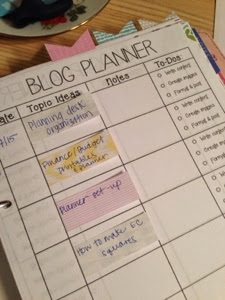 BLOG PLANNER
Date Topic Ideas Notes To-Dos
7/15 Planning desk
organization
Finance/Budget
printables
& planner
Planner set-up
How to make EC
squares
Write content
Create images
Format & post
Write content
Create images
Format & post
Write content
Create images
Format & post
Write content
Create images
Format & post
Write content
Create images
Format & post